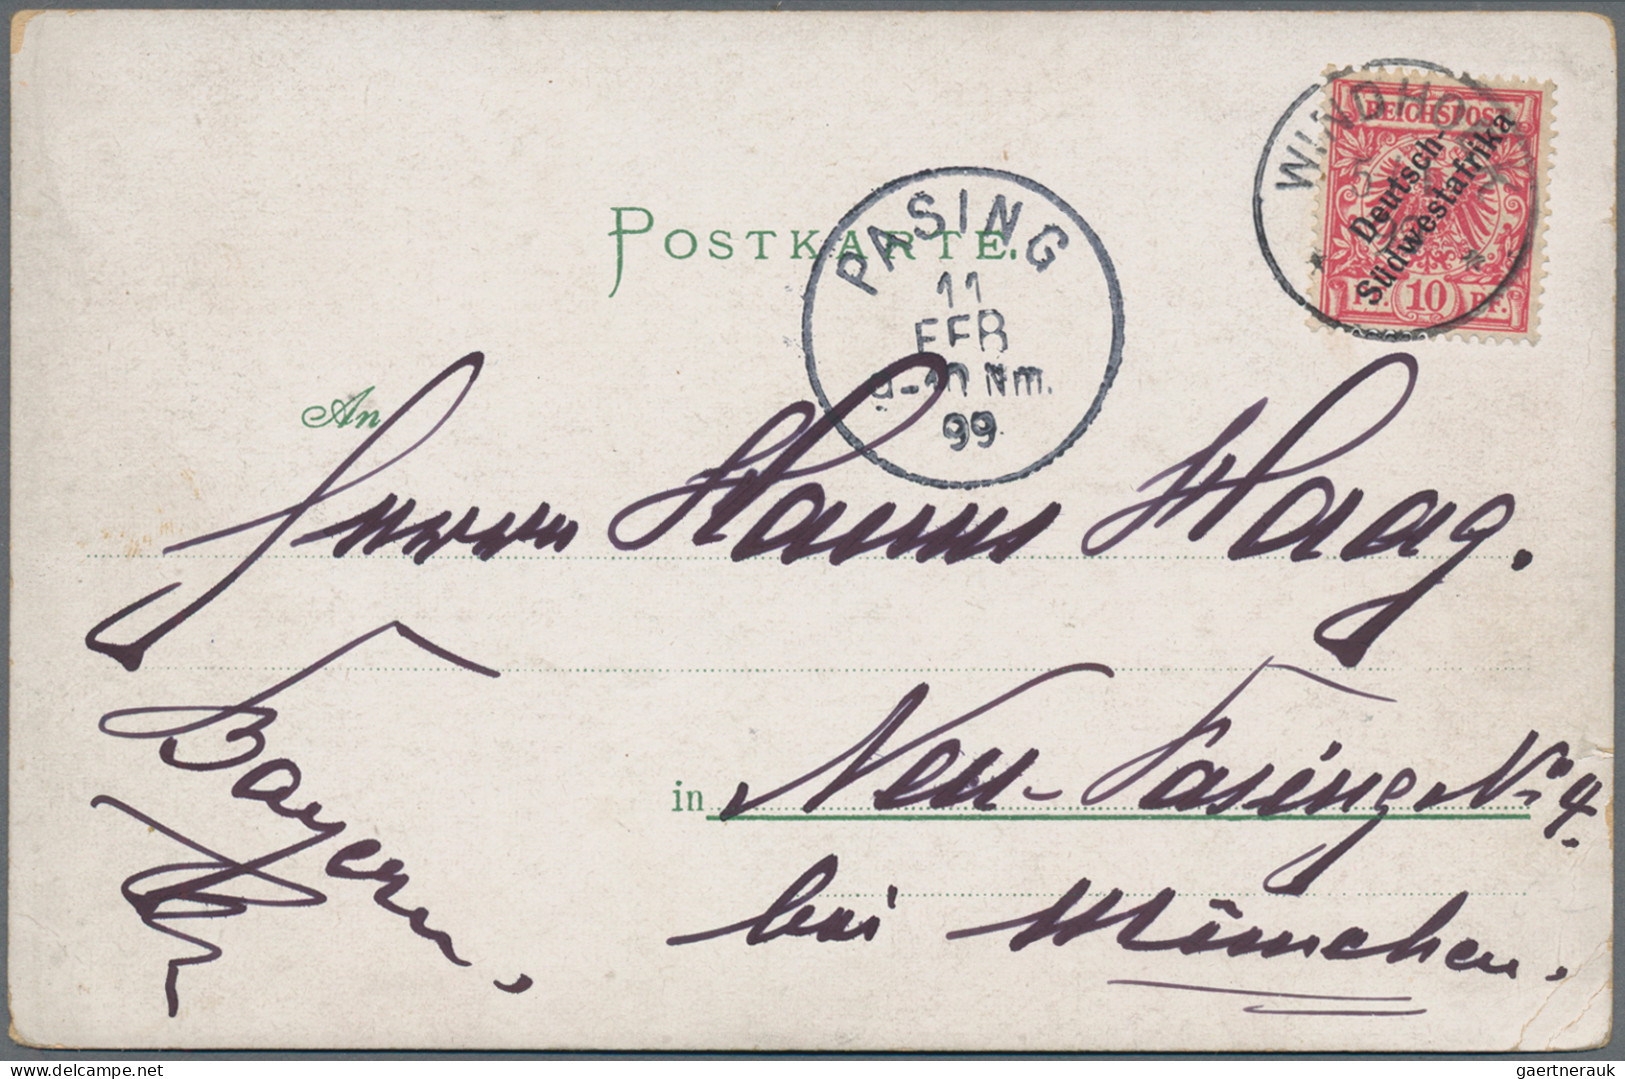 WINDHOEK
REICHSPOST
Deutsch-
Südwestafrika
PF. 10 PF.
POSTKARTE.
PASING
11
FEB
9-10 Nm.
99
An
Herrn Hanns Haag.
in Neu-Pasing No 4.
bei München.
Bayern.
delcampe.net
gaertnerauk